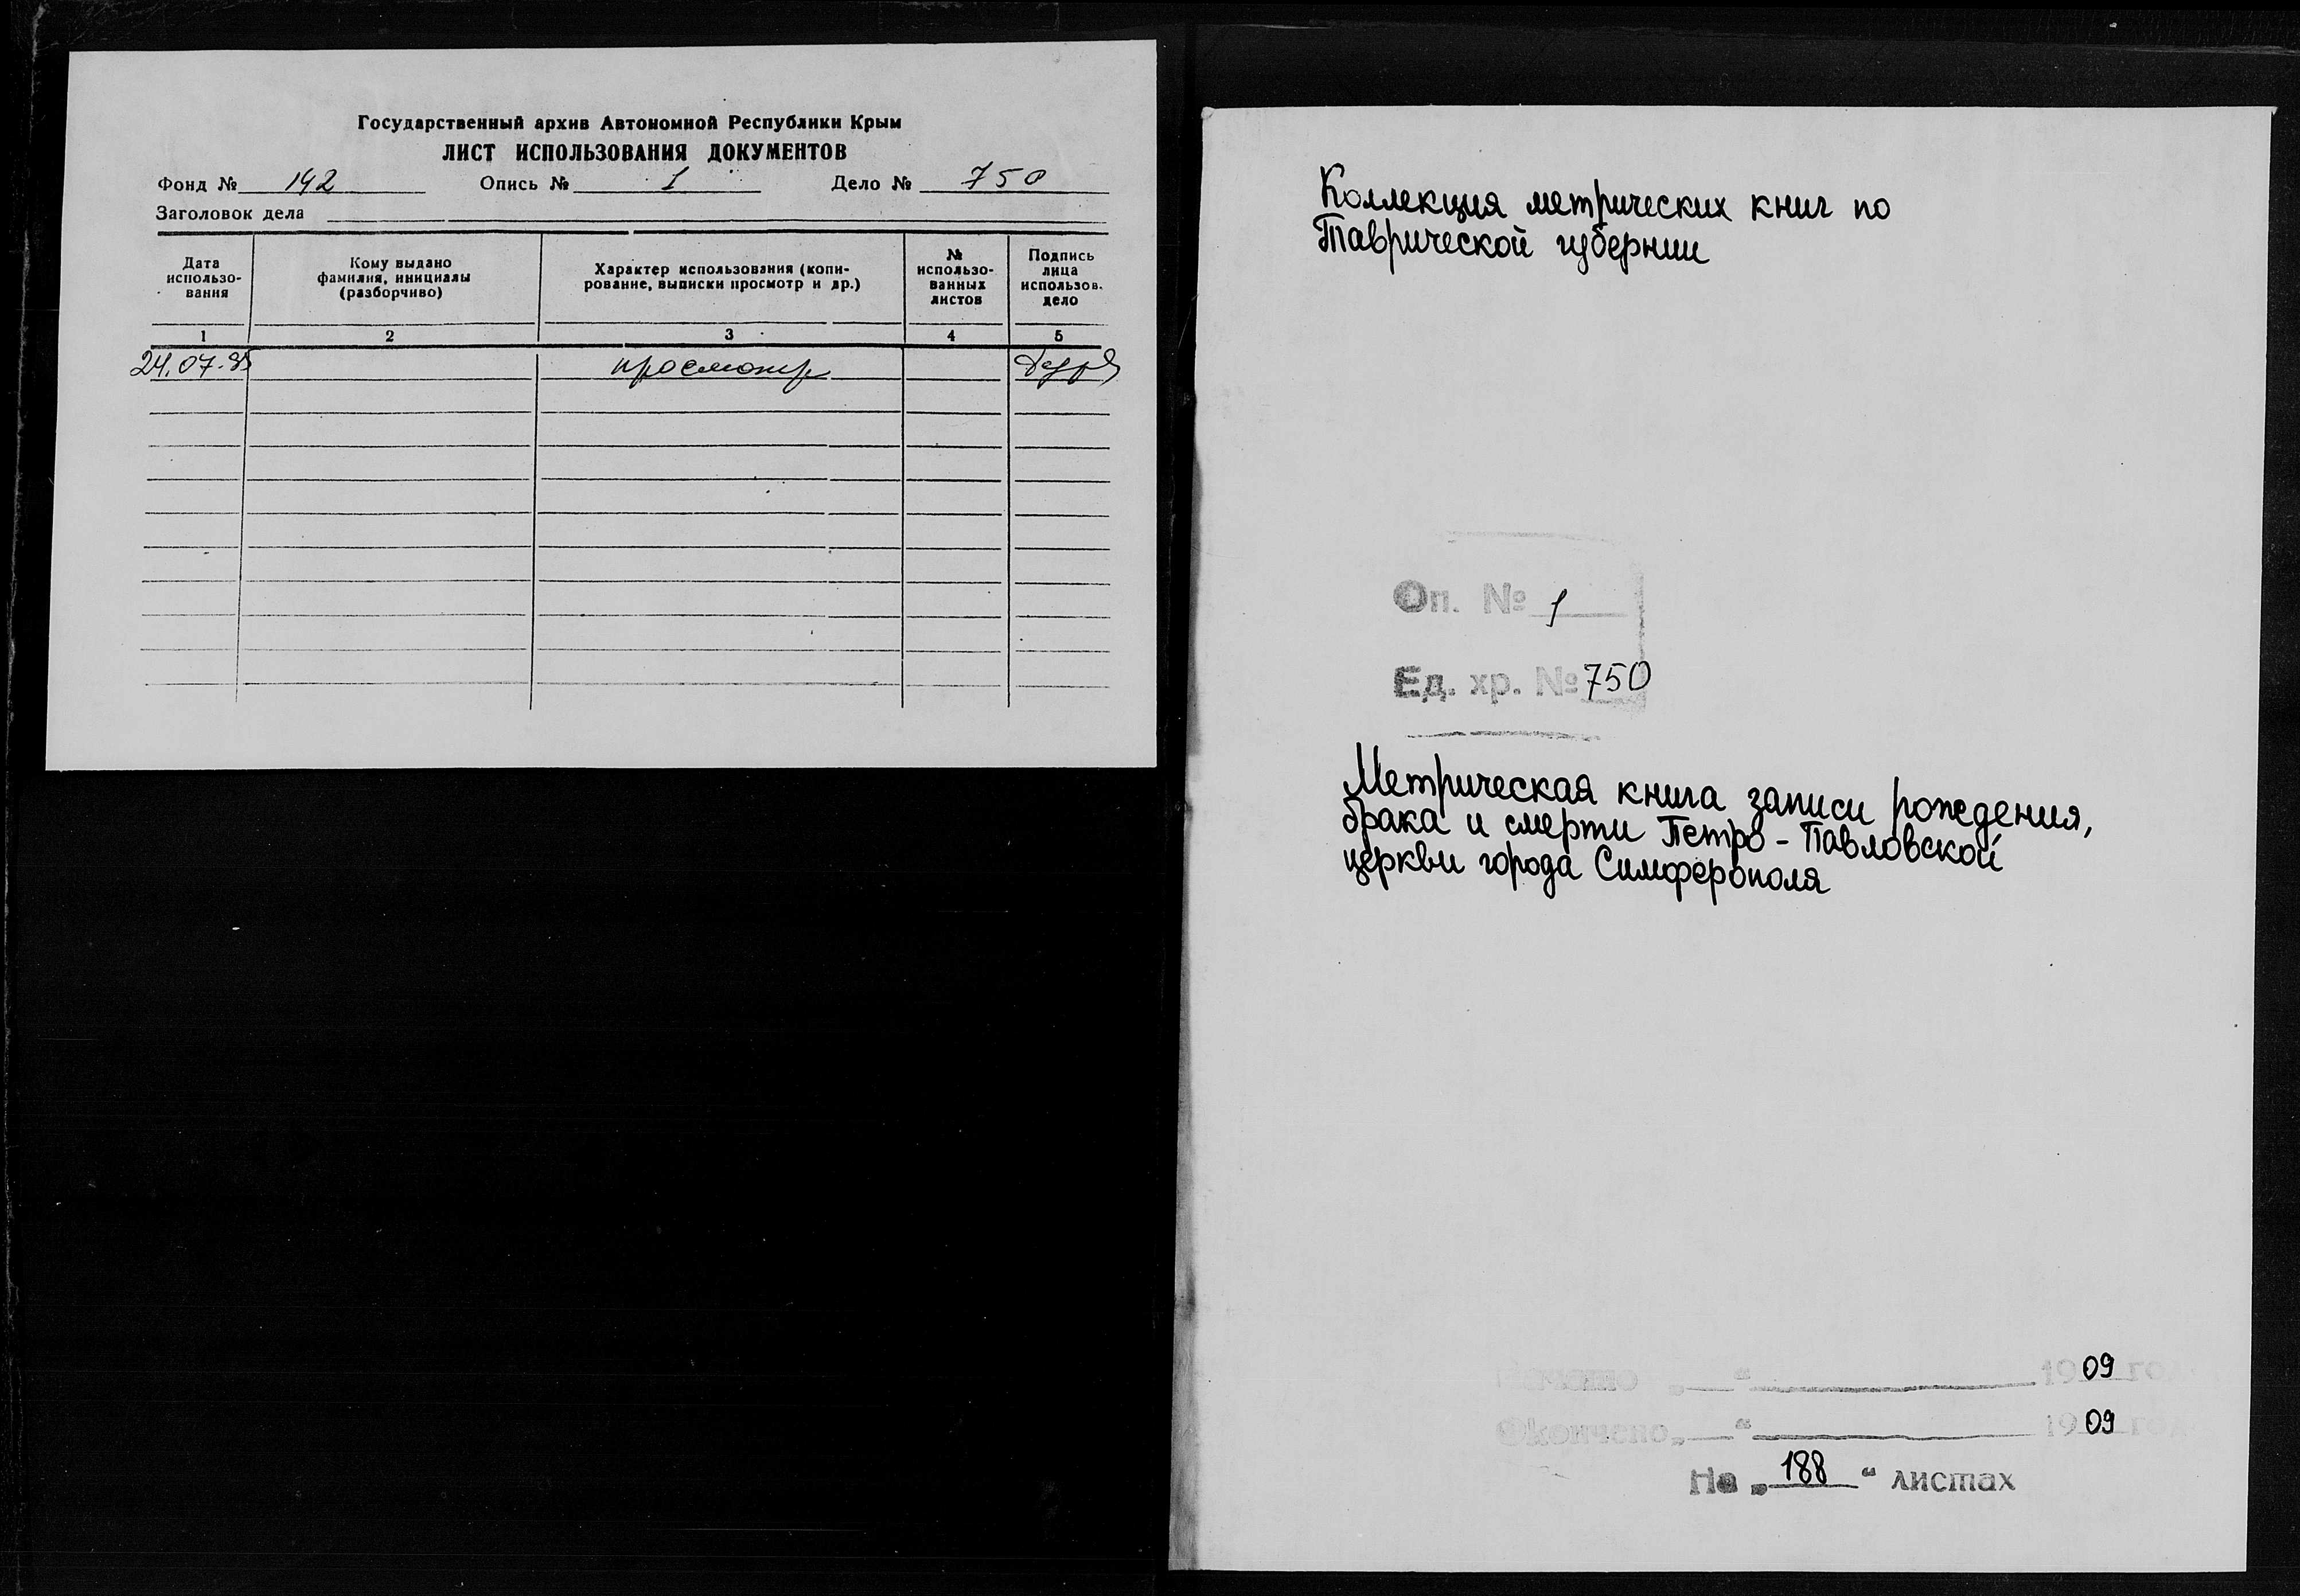 Государственный архив Автономной Республики Крым
ЛИСТ ИСПОЛЬЗОВАНИЯ ДОКУМЕНТОВ
Фонд № 142 Опись № 1 Дело № 750
Заголовок дела
Дата использо-вания
Кому выдано фамилия, инициалы (разборчиво)
Характер использования (копи-рование, выписки просмотр и др.)
№ использо-ванных листов
Подпись лица использов. дело
1 2 3 4 5
24.07.95 просмотр
Коллекция метрических книг по
Таврической губернии
Оп. № 1
Ед. хр. № 750
Метрическая книга записи рождения,
брака и смерти Петро-Павловской
церкви города Симферополя
Начато „ “ 1909 год
Окончено „ “ 1909 год
На „188“ листах